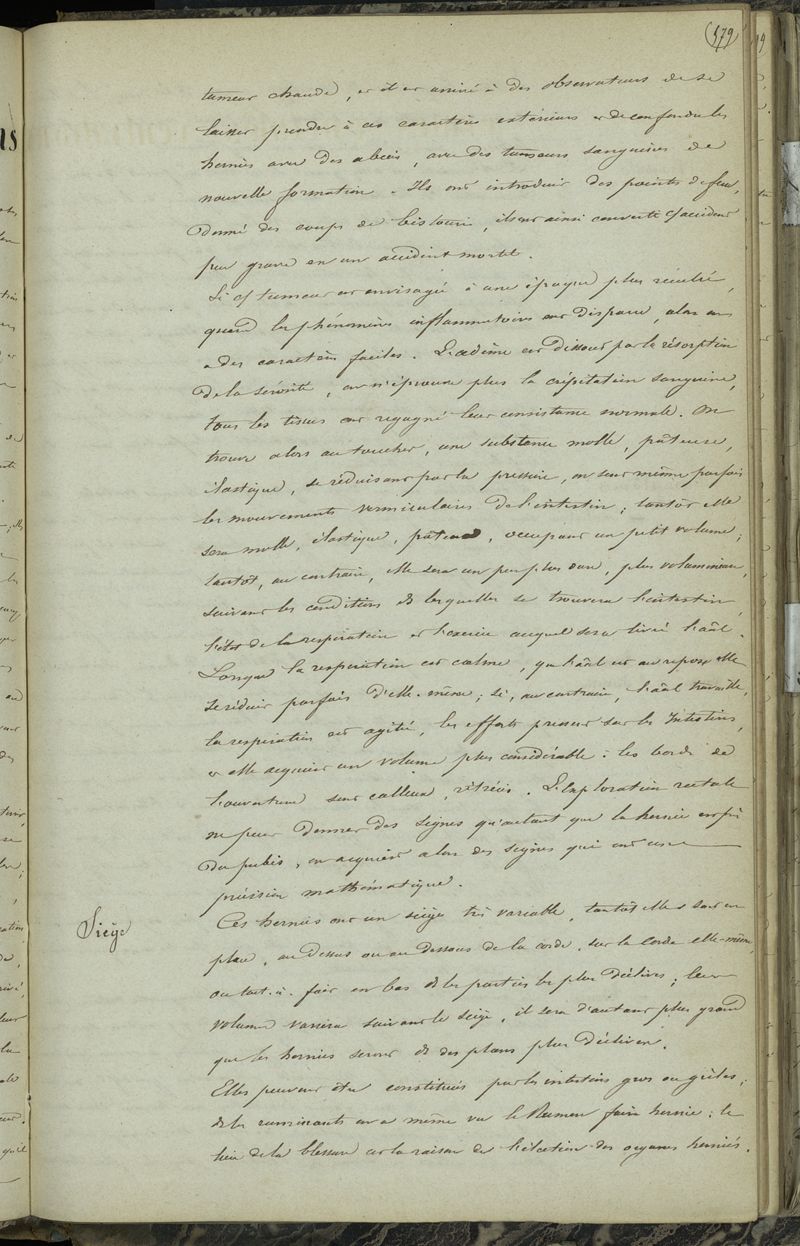 179
tumeur chaude, et il est arrivé à des observateurs de se
laisser prendre à ces caractères extérieurs et de confondre les
hernies avec des abcès, avec des tumeurs sanguines de
nouvelle formation. Ils ont introduit des points de feu,
donné des coups de bistouri, ils ont ainsi converti cet accident
peu grave en un accident mortel.
Si cet tumeur est envisagée à une époque plus reculée,
quand les phénomènes inflammatoires ont disparu, alors on
a des caractères faciles. L'œdème est dissous par la résorption
de la sérosité, on n'éprouve plus la crépitation sanguine,
tous les tissus ont regagné leur consistance normale. On
trouve alors au toucher, une substance molle, pâteuse,
élastique, se réduisant par la pression, on sent même parfois
les mouvements vermiculaires de l'intestin; tantôt elle
sera molle, élastique, pâteuse, occupant un petit volume;
tantôt, au contraire, elle sera un peu plus dure, plus volumineuse,
suivant les conditions ds lesquelles se trouvera l'intestin,
l'état de la respiration et l'exercice auquel sera livré l'aal.
Lorsque la respiration est calme, que l'aal est au repos elle
se réduit parfois d'elle-même; si, au contraire, l'aal travaille,
la respiration est agitée, les efforts pressent sur les Intestins,
et elle acquiert un volume plus considérable: les bords de
l'ouverture sont calleux, rétrécis. L'exploration rectale
ne peut donner des signes qu'autant que la hernie est près
du pubis, on acquiert alors des signes qui ont une
précision mathématique.
Siège
Ces hernies ont un siège très variable, tantôt elles sont en
plan, au dessus ou au dessous de la corde, sur la corde elle-même,
ou tout-à-fait en bas ds les parties les plus déclives; leur
volume variera suivant le siège, il sera d'autant plus grand
que les hernies seront ds des plans plus déclives.
Elles peuvent être constituées par les intestins gros ou grêles;
ds les ruminants on a même vu le Rumen faire hernie; le
lieu de la blessure est la raison de l'élection des organes herniés.